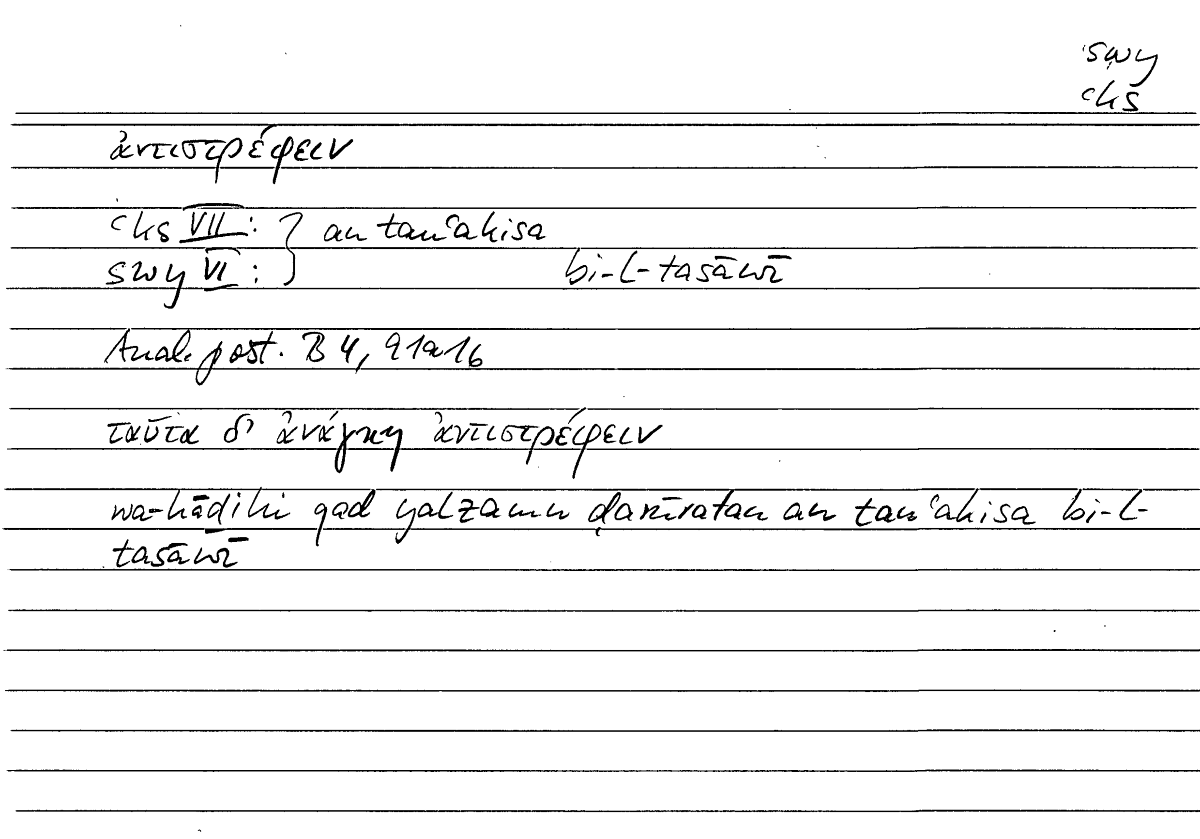 swy
ʿks
ἀντιστρέφειν
ʿks VII: } an tanʿakisa
swy VI: } bi-l-tasāwī
Anal. post. B 4, 91a16
ταῦτα δ' ἀνάγκη ἀντιστρέφειν
wa-hāḏihi qad yalzamu ḍarūratan an tanʿakisa bi-l-
tasāwī